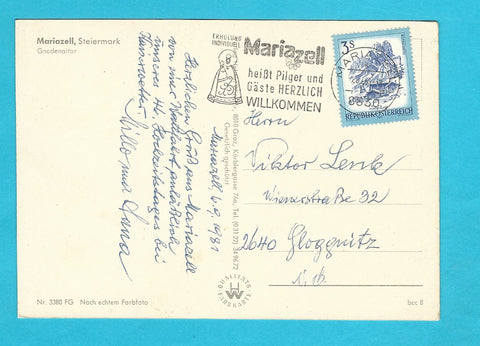 Mariazell, Steiermark
Gnadenaltar
ERHOLUNG
INDIVIDUELL
Mariazell
heißt Pilger und
Gäste HERZLICH
WILLKOMMEN
MARIAZELL
8630
3 S
REPUBLIK ÖSTERREICH
Mariazell 6.9.1981
Herzlichen Gruß aus Mariazell
von einer anläßlich
unseres Hochzeitstages bei
Willo und Anna
8010 Graz, Tel. (0 31 22)
Gesetzlich geschützt
QUALITÄTS
FARBKARTE
Herrn
Viktor Lenk
Wienerstraße 32
2640 Gloggnitz
N.Ö.
Nr. 3380 FG Nach echtem Farbfoto
bcc 8